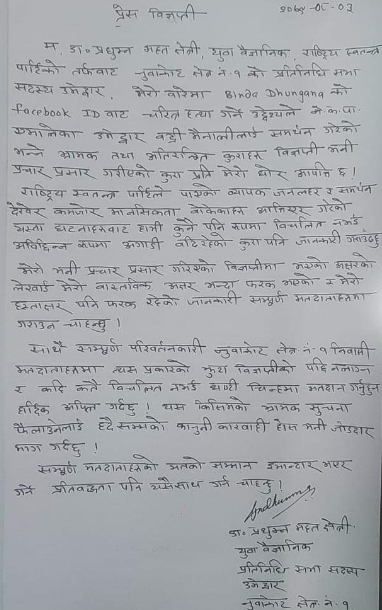 प्रेस विज्ञप्ती
२०७९-०८-०३
म, डा० प्रधुम्न महत क्षेत्री, युवा वैज्ञानिक, राष्ट्रिय स्वतन्त्र
पार्टिको तर्फबाट नुवाकोट क्षेत्र नं. १ को प्रतिनिधि सभा
सदस्य उमेद्वार, मेरो बारेमा Binda Dhungana को
facebook ID बाट चरित्र हत्या गर्ने उद्देश्यले ने.क.पा.
एमालेका उमेद्वार बद्री मैनालीलाई समर्थन गरेको
भन्ने भ्रामक तथा अतिरञ्जित कुराहरु विज्ञप्ती भनी
प्रचार प्रसार गरीएको कुरा प्रति मेरो घोर आपत्ति छ ।
राष्ट्रिय स्वतन्त्र पार्टिले पाएको व्यापक जनलहर र समर्थन
देखेर कमजोर मानसिकता बोकेकाहरु आत्तिएर गरेको
यस्ता घटनाहरुबाट हामी कुनै पनि रुपमा विचलित नभई
अविछिन्न रुपमा अगाडी बढिरहेको कुरा पनि जानकारी गराउँदछु
मेरो भनी प्रचार प्रसार गरिएको विज्ञप्तीमा भएको अक्षरको
लेखाई मेरो वास्तविक अक्षर भन्दा फरक भएको र मेरो
हस्ताक्षर पनि फरक रहेको जानकारी सम्पूर्ण मतदाताहरुमा
गराउन चाहन्छु ।
साथै सम्पूर्ण परिवर्तनकारी नुवाकोट क्षेत्र नं. १ निवासी
मतदाताहरुमा यस प्रकारको झुठा विज्ञप्तीको पछि नलाग्न
र कदि कतै विचलित नभई घण्टी चिन्हमा मतदान गर्नुहुन
हार्दिक अपिल गर्दछु । यस किसिमको भ्रामक सुचना
फैलाउनेलाई हदै सम्मको कानुनी कारवाही होस भनी जोडदार
माग गर्दछु ।
सम्पूर्ण मतदाताहरुको मतको सम्मान इमान्दार भएर
गर्ने प्रतिवद्धता पनि यसैसाथ गर्न चाहन्छु ।
डा० प्रधुम्न महत क्षेत्री
युवा वैज्ञानिक
प्रतिनिधि सभा सदस्य
उमेद्वार
नुवाकोट क्षेत्र नं. १